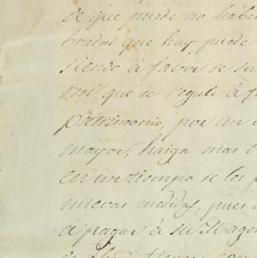 de que puede no haber
brados que hay puede
siendo á favor de su
que se regule á f
patrimonio, por un
mayor, haiga mas
en un tiempo se les p
nuevas medidas, pues
á pagar á su Mage